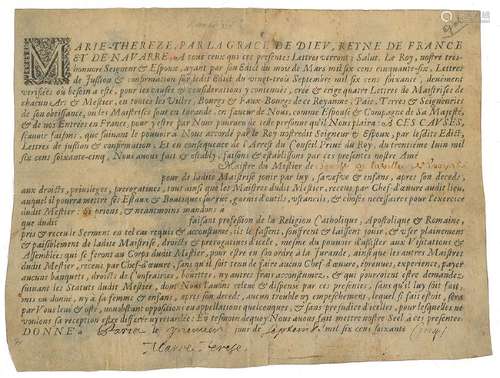 MARIE-THEREZE, PAR LA GRACE DE DIEV, REYNE DE FRANCE
ET DE NAVARRE, A tous ceux qui ces presentes Lettres verront; Salut. Le Roy, nostre tres-
honnoré Seigneur & Espoux, ayant par son Edict du mois de Mars mil six cens cinquante-six, Lettres
de Jussion & confirmation sur ledit Edict du vingt-trois Septembre mil six cens soixante, deuëment
verifiées où besoin a esté, pour les causes & considerations y contenuës, creé & erigé quatre Lettres de Maistrises de
chacun Art & Mestier, en toutes les Villes, Bourgs & Faux-Bourgs de ce Royaume, Païs, Terres & Seigneuries
de son obeïssance, où les Maistrises sont en Jurande, en faveur de Nous, comme Espouse & Compagne de Sa Majesté,
& de nos Entrées en France, pour y estre par Nous pourveu de telles personnes qu'il Nous plaira. A CES CAUSES,
sçavoir faisons, que suivant le pouvoir à Nous accordé par le Roy nostredit Seigneur & Espoux, par lesdits Edict,
Lettres de jussion & confirmation; Et en consequence de l'Arrest du Conseil Privé du Roy, du troisiéme Iuin mil
six cens soixante-cinq, Nous avons fait & estably, faisons & establissons par ces presentes nostre Amé
Maistre du Mestier de
pour de ladite Maistrise jouïr par luy, sa vefve & enfans, apres son decedz,
aux droicts, privileges, prerogatives, tous ainsi que les Maistres dudit Mestier, receus par Chef-d'œuvre audit lieu,
auquel il pourra mettre sur Estaux & Boutiques sur ruë, garnis d'outils, ustanciles, & choses necessaires pour l'exercice
dudit Mestier: Si prions, & neantmoins mandons à
que dudit faisant profession de la Religion Catholique, Apostolique & Romaine,
pris & receu le Serment en tel cas requis & accoustumé, ils le fassent, souffrent & laissent jouïr, & user plainement
& paisiblement de ladite Maistrise, droicts & prerogatives d'icelle, mesme du pouvoir d'assister aux Visitations &
Assemblées, qui se feront au Corps dudit Mestier, pour estre en son ordre à la Jurande, ainsi que les autres Maistres
dudit Mestier, receus par Chef-d'œuvre, sans qu'il soit tenu de faire aucun Chef-d'œuvre, espreuve, experience, payer
aucuns banquets, droicts de Confrairies, bouettes, ny autres frais accoustumez, & qui pourroient estre demandez,
suivant les Statuts dudit Mestier, dont Nous l'avons relevé & dispensé par ces presentes, sans qu'il luy soit fait,
mis ou donné, ny à sa femme & enfans, apres son decedz, aucun trouble ny empeschement, lequel si fait estoit, sera
par Vous levé & osté, nonobstant oppositions ou appellations quelconques, & sans prejudice d'icelles, pour lesquelles ne
voulons sa reception estre differée ny retardée; En tesmoin dequoy Nous avons fait mettre nostre Seel à ces presentes.
DONNÉ à Paris le premier jour de Septembre mil six cens soixante cinq
Marie Terese